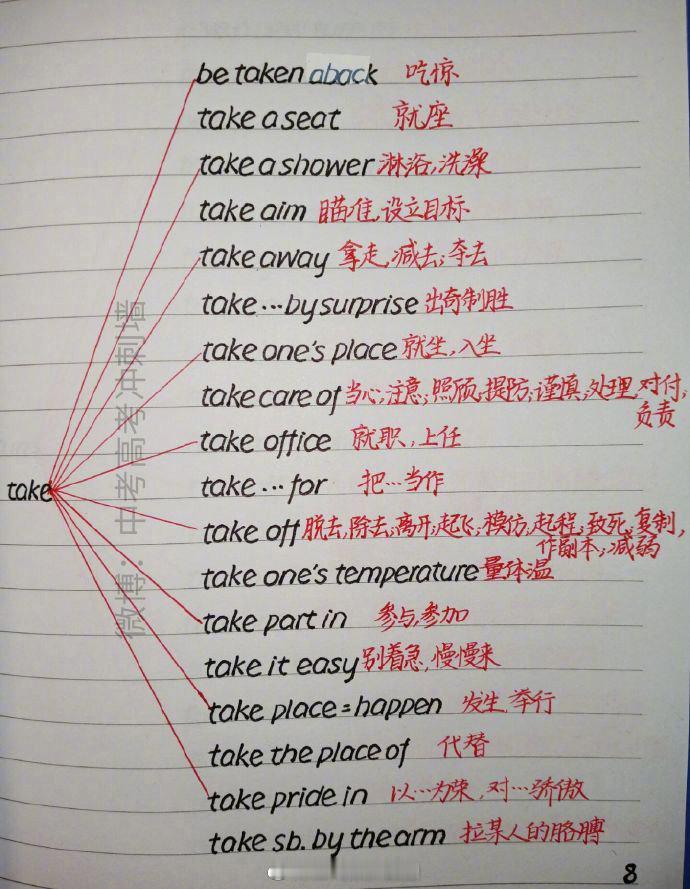 be taken aback 吃惊
take a seat 就座
take a shower 淋浴,洗澡
take aim 瞄准,设立目标
take away 拿走,减去;夺去
take…by surprise 出奇制胜
take one's place 就坐,入坐
take care of 当心,注意;照顾;提防;谨慎,处理,对付,
负责
take office 就职,上任
take
take…for 把…当作
take off 脱去,除去;离开,起飞,模仿,起程,致死,复制,
作副本,减弱
take one's temperature 量体温
take part in 参与,参加
take it easy 别着急,慢慢来
take place=happen 发生,举行
take the place of 代替
take pride in 以…为荣,对…骄傲
take sb. by the arm 拉某人的胳膊
8
微博：中考高考冲刺墙